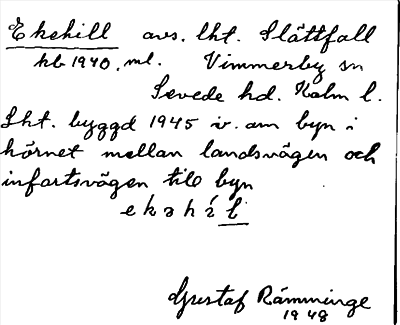 Ekehill avs. lht. Slättfall
kb 1940. ml. Vimmerby sn
Sevede hd. Kalm l.
Lht. byggd 1945 v. om byn i
hörnet mellan landsvägen och
infartsvägen till byn
ekəhíl
Gustaf Rämminge
1948